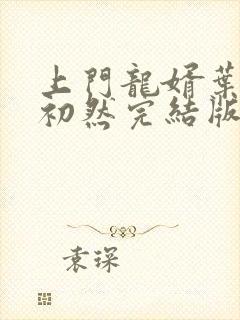 上門龍婿葉
初然完結版
袁琛